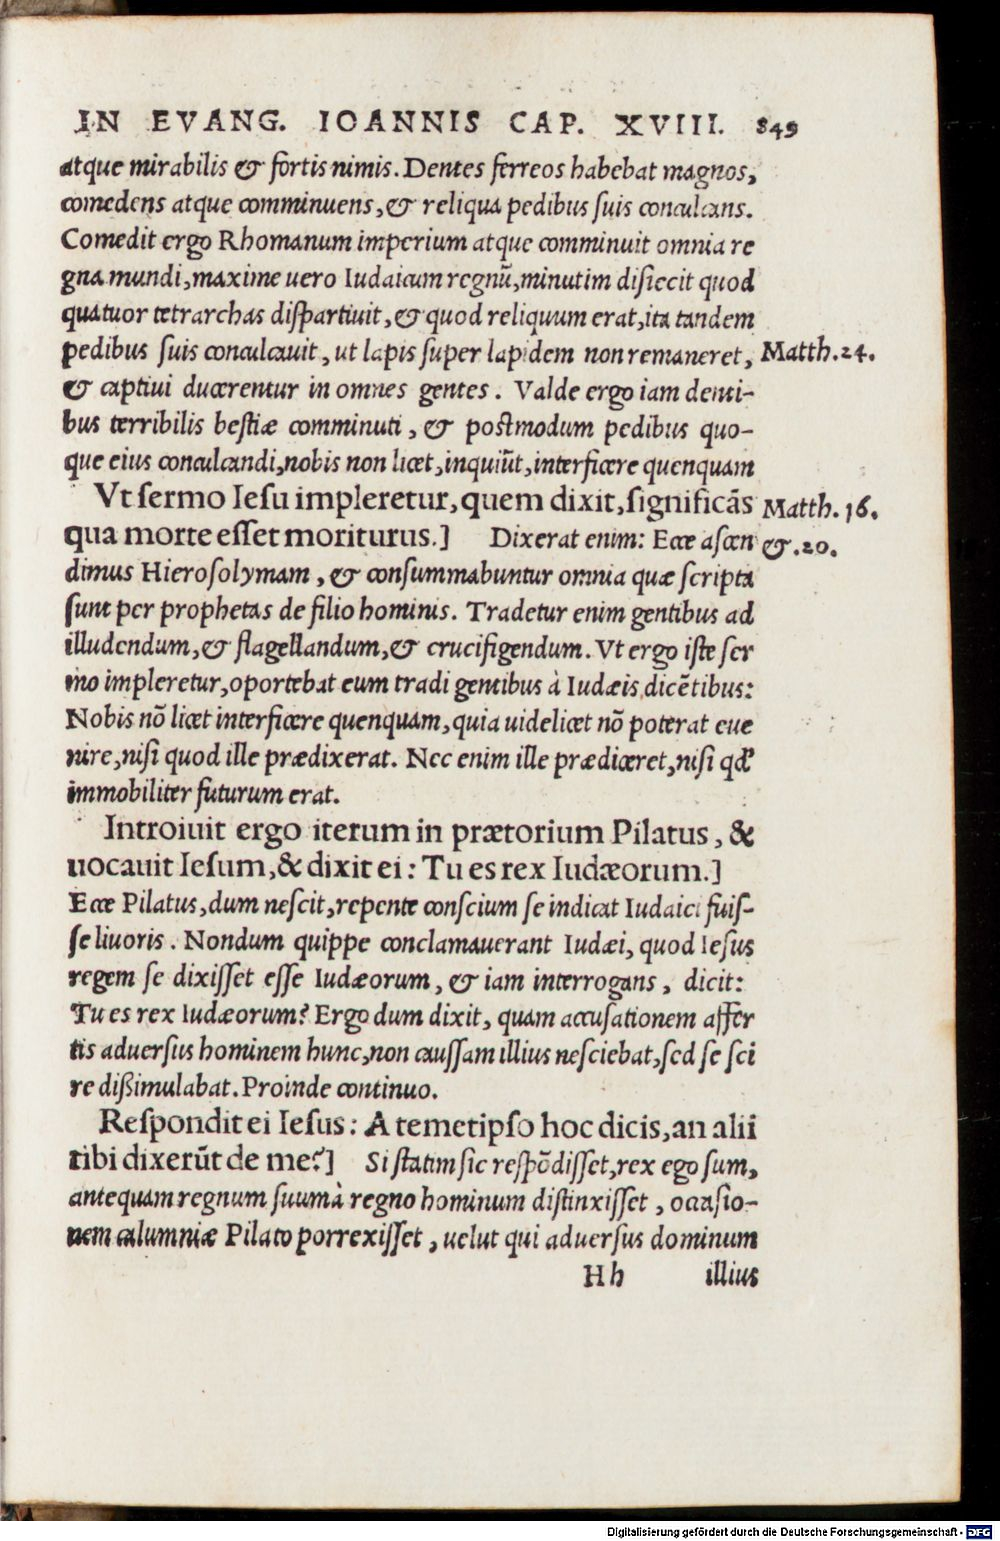 IN EVANG. IOANNIS CAP. XVIII. 849
atque mirabilis & fortis nimis. Dentes ferreos habebat magnos,
comedens atque comminuens, & reliqua pedibus suis conculcans.
Comedit ergo Rhomanum imperium atque comminuit omnia re
gna mundi, maxime uero Iudaicum regnū, minutim disiecit quod
quatuor tetrarchas dispartiuit, & quod reliquum erat, ita tandem
pedibus suis conculcauit, ut lapis super lapidem non remaneret, Matth. 24.
& captiui ducerentur in omnes gentes. Valde ergo iam denti-
bus terribilis bestiæ comminuti, & postmodum pedibus quo-
que eius conculcandi, nobis non licet, inquiūt, interficere quenquam
Vt sermo Iesu impleretur, quem dixit, significās Matth. 16.
qua morte esset moriturus.] Dixerat enim: Ecce ascen &. 20.
dimus Hierosolymam, & consummabuntur omnia quæ scripta
sunt per prophetas de filio hominis. Tradetur enim gentibus ad
illudendum, & flagellandum, & crucifigendum. Vt ergo iste ser
mo impleretur, oportebat eum tradi gentibus à Iudæis dicētibus:
Nobis nō licet interficere quenquam, quia uidelicet nō poterat eue
nire, nisi quod ille prædixerat. Nec enim ille prædiceret, nisi qd'
immobiliter futurum erat.
Introiuit ergo iterum in prætorium Pilatus, &
uocauit Iesum, & dixit ei: Tu es rex Iudæorum.]
Ecce Pilatus, dum nescit, repente conscium se indicat Iudaici fuis-
se liuoris. Nondum quippe conclamauerant Iudæi, quod Iesus
regem se dixisset esse Iudæorum, & iam interrogans, dicit:
Tu es rex Iudæorum? Ergo dum dixit, quam accusationem affer
tis aduersus hominem hunc, non caussam illius nesciebat, sed se sci
re dißimulabat. Proinde continuo.
Respondit ei Iesus: A temetipso hoc dicis, an alii
tibi dixerūt de me?] Si statim sic respōdisset, rex ego sum,
antequam regnum suum à regno hominum distinxisset, occasio-
nem calumniæ Pilato porrexisset, uelut qui aduersus dominum
Hh illius
Digitalisierung gefördert durch die Deutsche Forschungsgemeinschaft - DFG